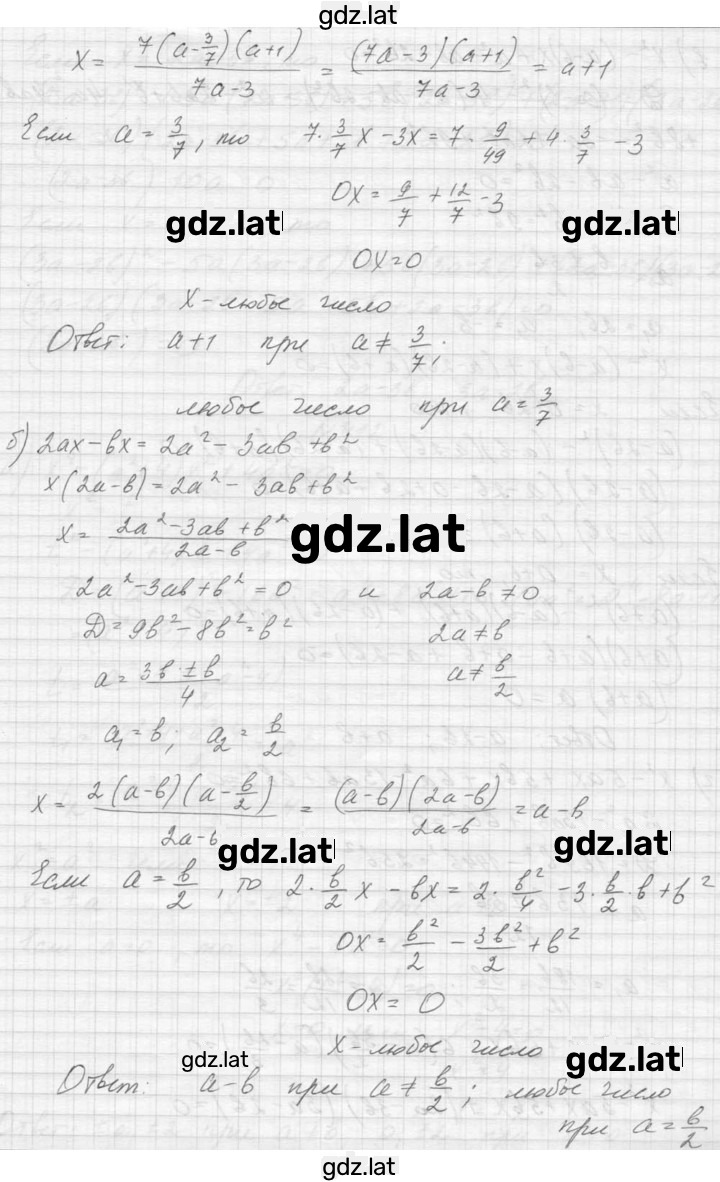 gdz.lat
x = 7(a-3/7)(a+1)/7a-3 = (7a-3)(a+1)/7a-3 = a+1
Если a = 3/7, то 7·3/7x - 3x = 7·9/49 + 4·3/7 - 3
0x = 9/7 + 12/7 - 3
gdz.lat gdz.lat
0x = 0
x - любые число
Ответ: a+1 при a ≠ 3/7;
любые число при a = 3/7
б) 2ax - bx = 2a² - 3ab + b²
x(2a-b) = 2a² - 3ab + b²
x = 2a² - 3ab + b²/2a-b gdz.lat
2a² - 3ab + b² = 0 и 2a-b ≠ 0
D = 9b² - 8b² = b² 2a ≠ b
a = 3b ± b/4 a ≠ b/2
a₁ = b; a₂ = b/2
x = 2(a-b)(a-b/2)/2a-b = (a-b)(2a-b)/2a-b = a-b
gdz.lat gdz.lat
Если a = b/2, то 2·b/2x - bx = 2·b²/4 - 3·b/2·b + b²
0x = b²/2 - 3b²/2 + b²
0x = 0
x - любые число
gdz.lat gdz.lat
Ответ: a-b при a ≠ b/2; любые число
при a = b/2
gdz.lat